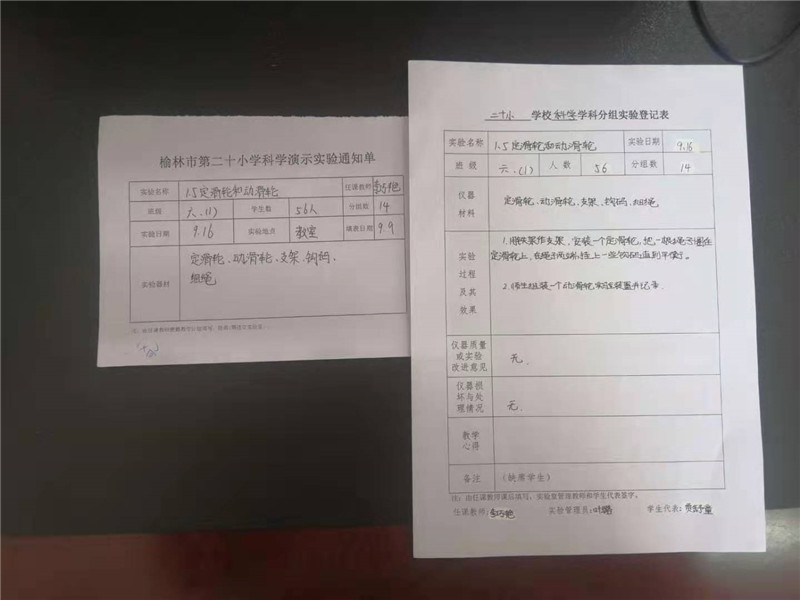 榆林市第二十小学科学演示实验通知单
实验名称 1.5定滑轮和动滑轮 任课教师 李巧艳
班级 六.(1) 学生数 56人 分组数 14
实验日期 9.16 实验地点 教室 填表日期 9.9
实验器材 定滑轮、动滑轮、支架、钩码、
组绳
二十小 学校科学学科分组实验登记表
实验名称 1.5定滑轮和动滑轮 实验日期 9.16
班级 六.(1) 人数 56 分组数 14
仪器
材料
定滑轮、动滑轮、支架、钩码、组绳
实验
过程
及其
效果
1.用铁架作支架,安装一个定滑轮,把一根绳子通在
定滑轮上,在绳子两端挂上一些钩码,直到平衡。
2.师生组装一个动滑轮实验装置并记录
仪器质量
或实验
改进意见
无.
仪器损
坏与处
理情况
无.
教学
心得
备注 (缺席学生)
注:由任课教师课后填写,实验室管理教师和学生代表签字。
任课教师:李巧艳 实验管理员: 学生代表: